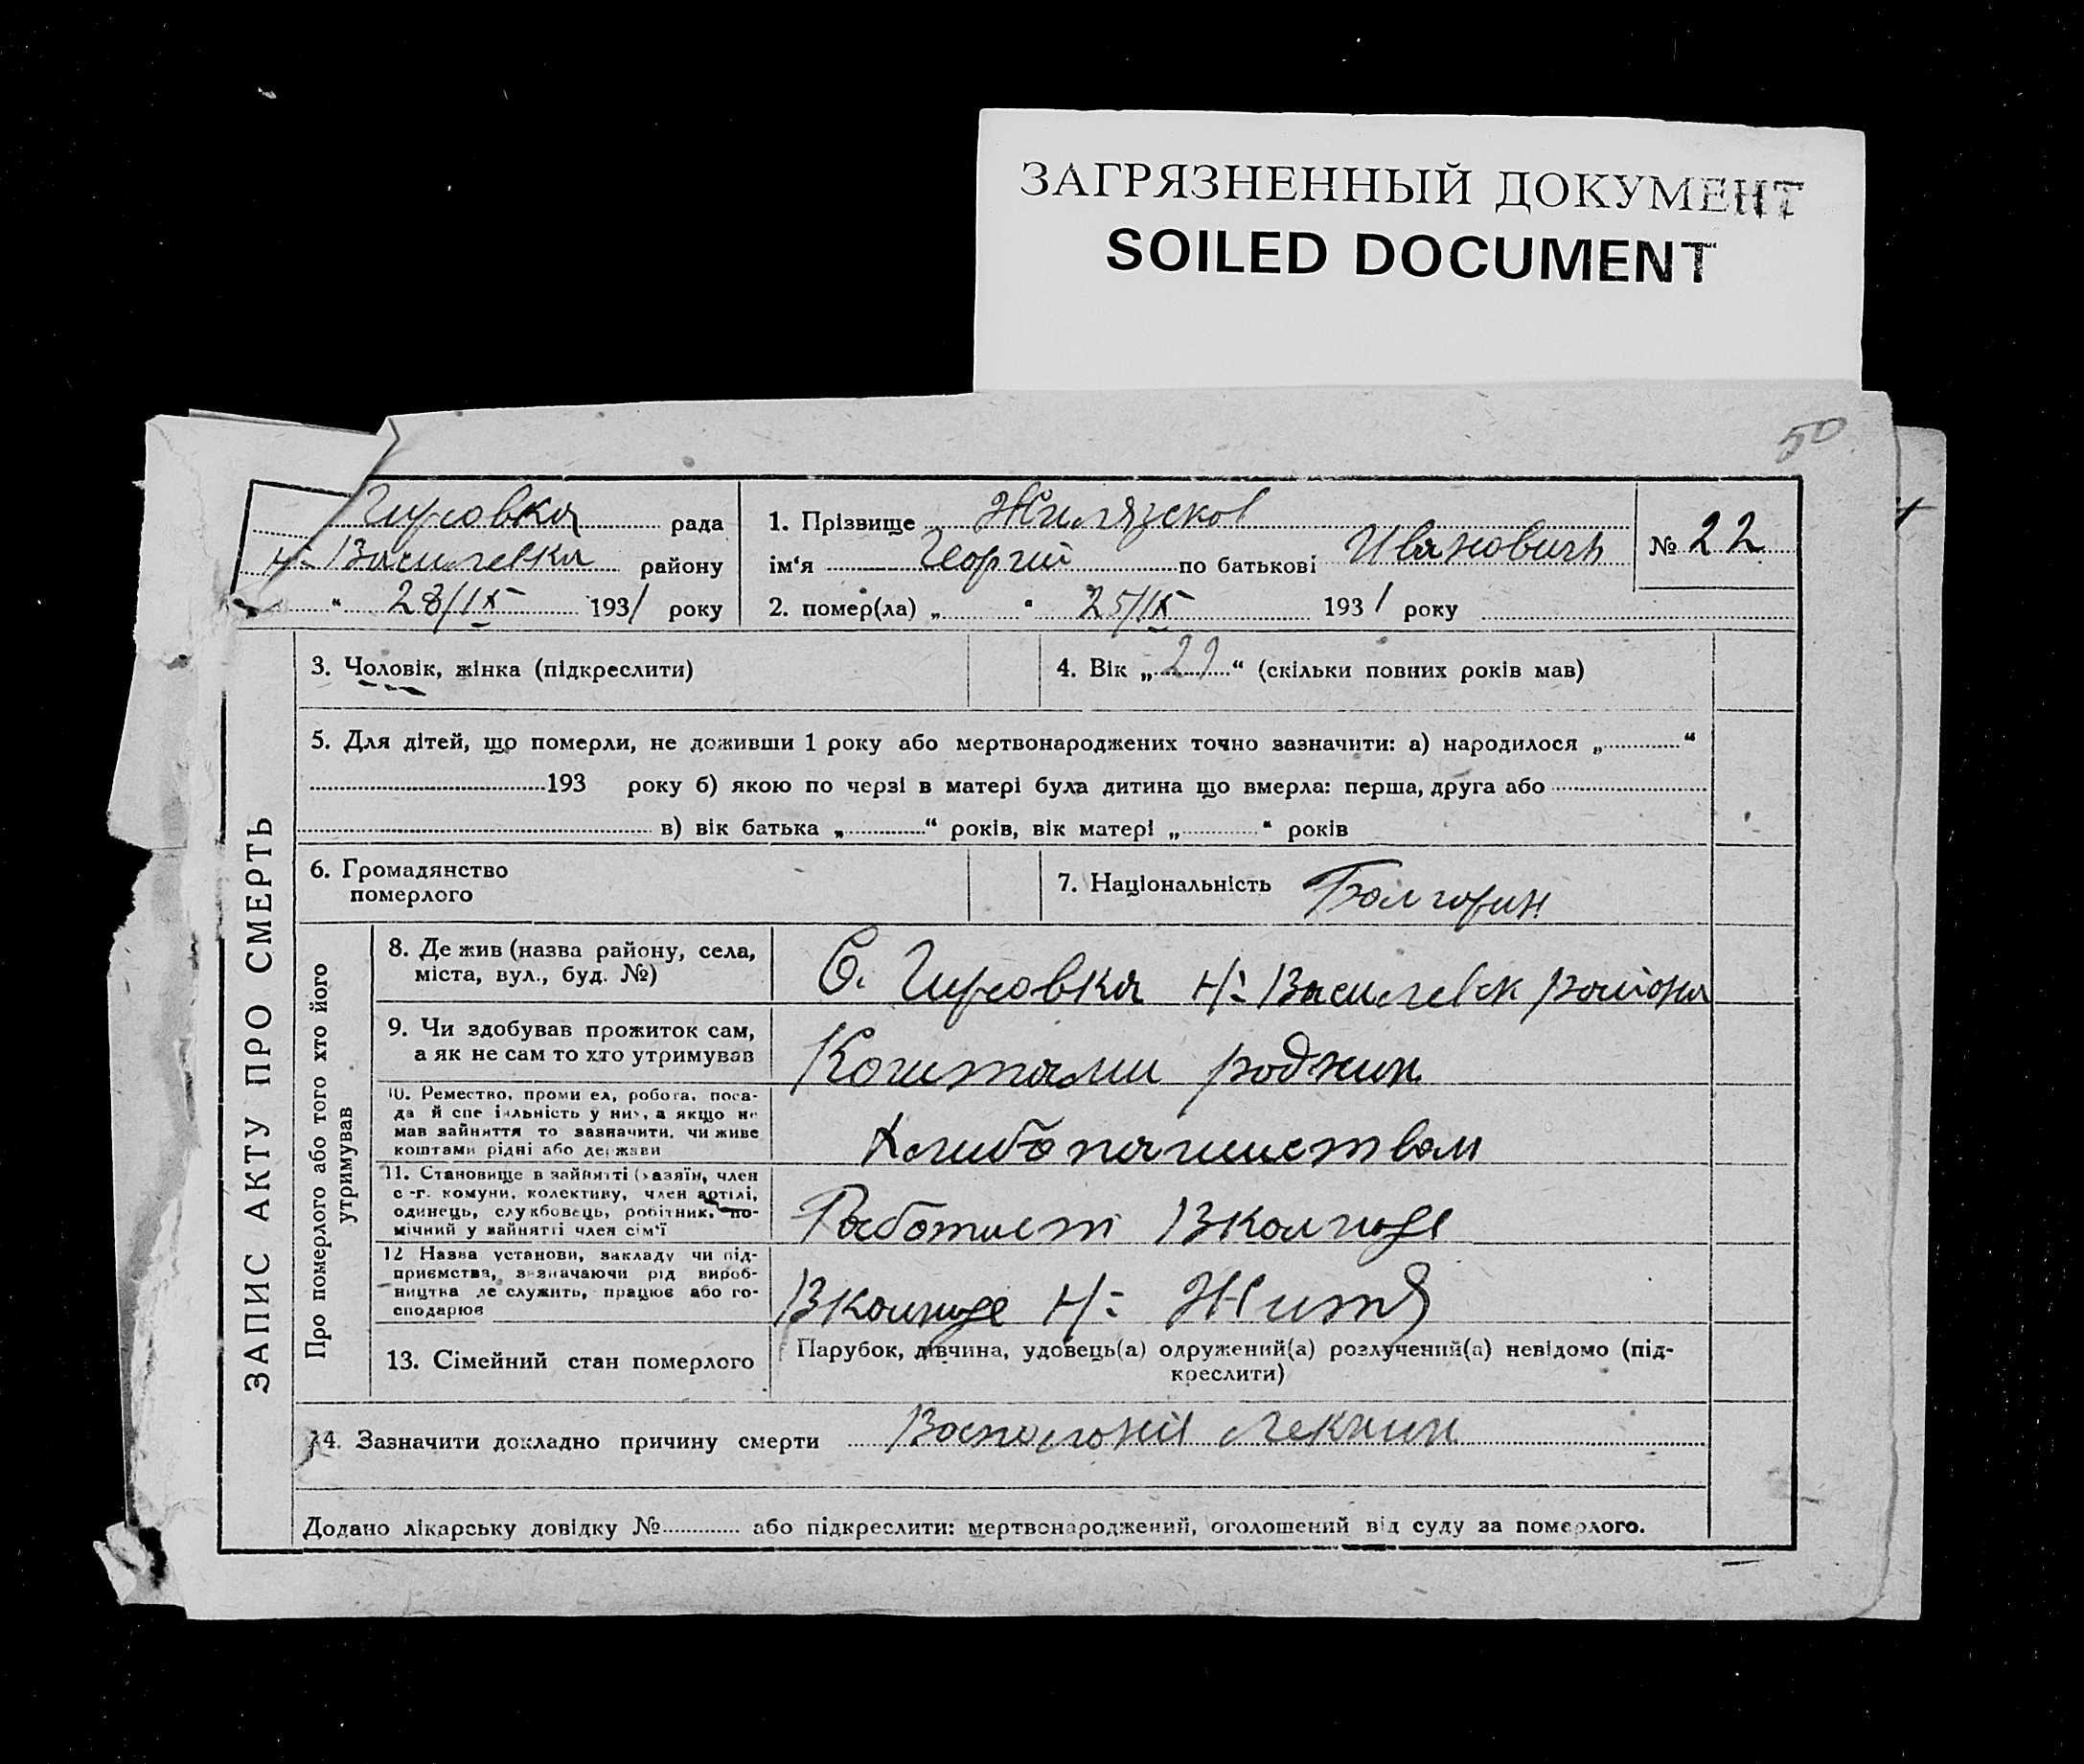 ЗАГРЯЗНЕННЫЙ ДОКУМЕНТ
SOILED DOCUMENT
50
Гировка рада
Н-Василевка району
" 28/IX 1931 року
1. Прізвище Жилязсков
ім'я Георгий по батькові Ивановичъ
2. помер(ла) „ " 25/IX 1931 року
№ 22
3. Чоловік, жінка (підкреслити)
4. Вік „29" (скільки повних років мав)
5. Для дітей, що померли, не доживши 1 року або мертвонароджених точно зазначити: а) народилося „ "
193 року б) якою по черзі в матері була дитина що вмерла: перша, друга або
в) вік батька „ " років, вік матері „ " років
6. Громадянство
померлого
7. Національність Болгорин
ЗАПИС АКТУ ПРО СМЕРТЬ
Про померлого або того хто його
утримував
8. Де жив (назва району, села,
міста, вул., буд. №)
С. Гировка Н-Василевск району
9. Чи здобував прожиток сам,
а як не сам то хто утримував
Коштами роджин
10. Ремество, проми ел, робота, поса-
да й спе іальність у них, а якщо не
мав зайняття то зазначити, чи живе
коштами рідні або держави
Хлибопашеством
11. Становище в зайнятті (хазяїн, член
с-г. комуни, колективу, член артілі,
одинець, службовець, робітник, по-
мічний у зайнятті член сім'ї
Работает Вколгозе
12 Назва установи, закладу чи під-
приємства, зазначаючи рід вироб-
ництва де служить, працює або го-
сподарює
Вколгозе Н- Житя
13. Сімейний стан померлого
Парубок, дівчина, удовець(а) одружений(а) розлучений(а) невідомо (під-
креслити)
14. Зазначити докладно причину смерти Воспологня лекнин
Додано лікарську довідку № або підкреслити: мертвонароджений, оголошений від суду за померлого.